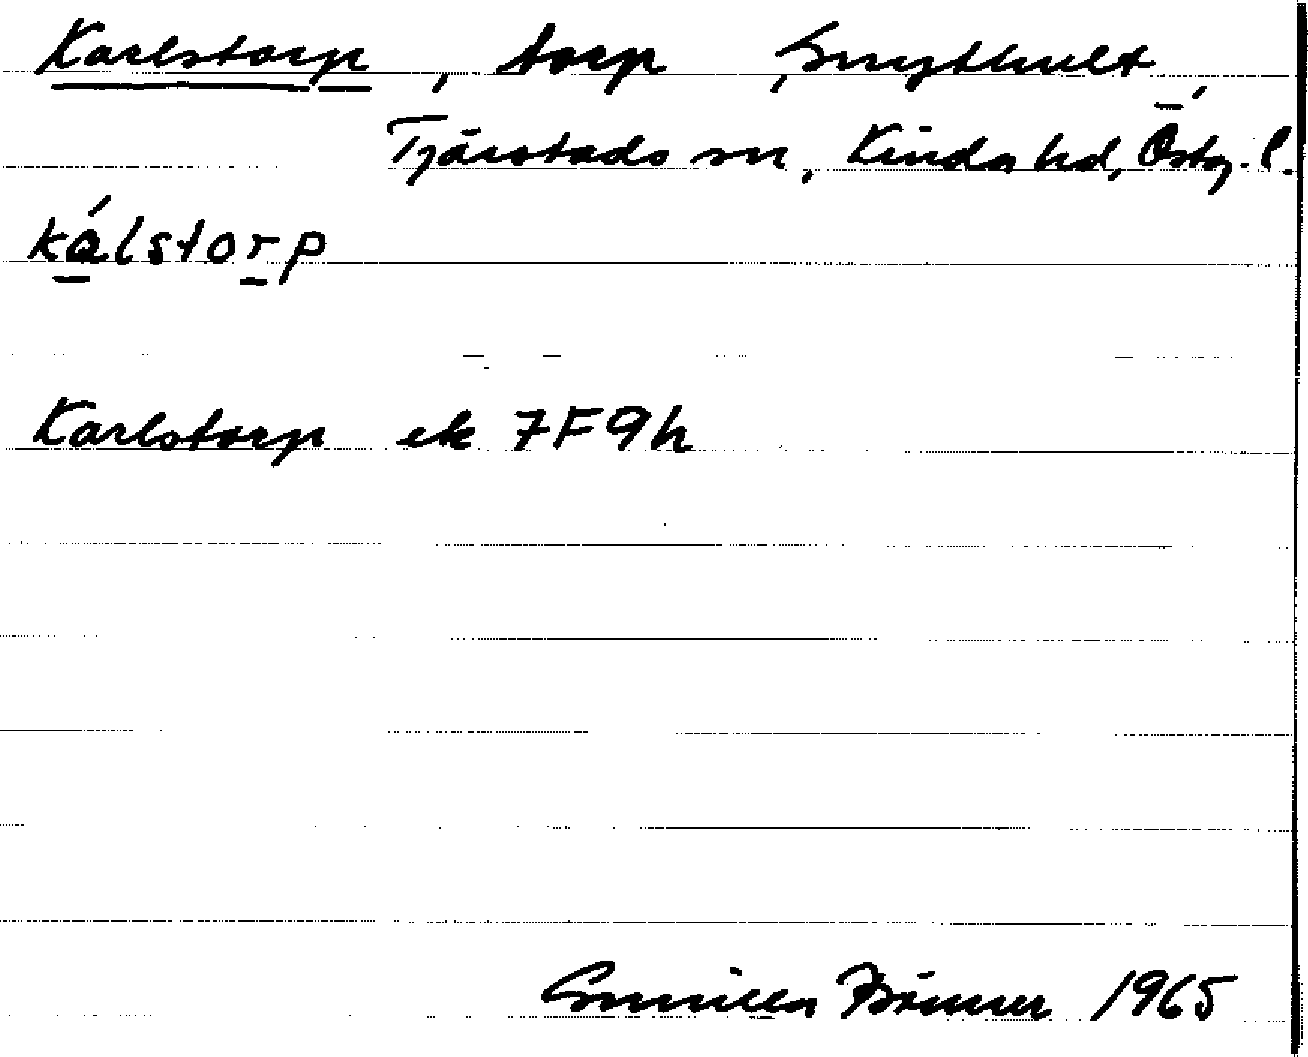 Karlstorp, torp, Smythult,
Tjärstads sn, Kinda hd, Östg. l.
kálstorp
Karlstorp ek 7F9h
Gunilla 1965